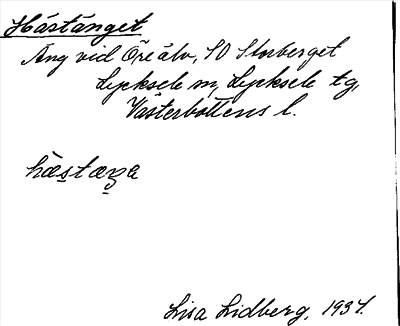 Hästänget
Äng vid Öre älv, SO Storberget
Lycksele sn, Lycksele tg,
Västerbottens l.
hæstæŋa
Lisa Lidberg, 1937.